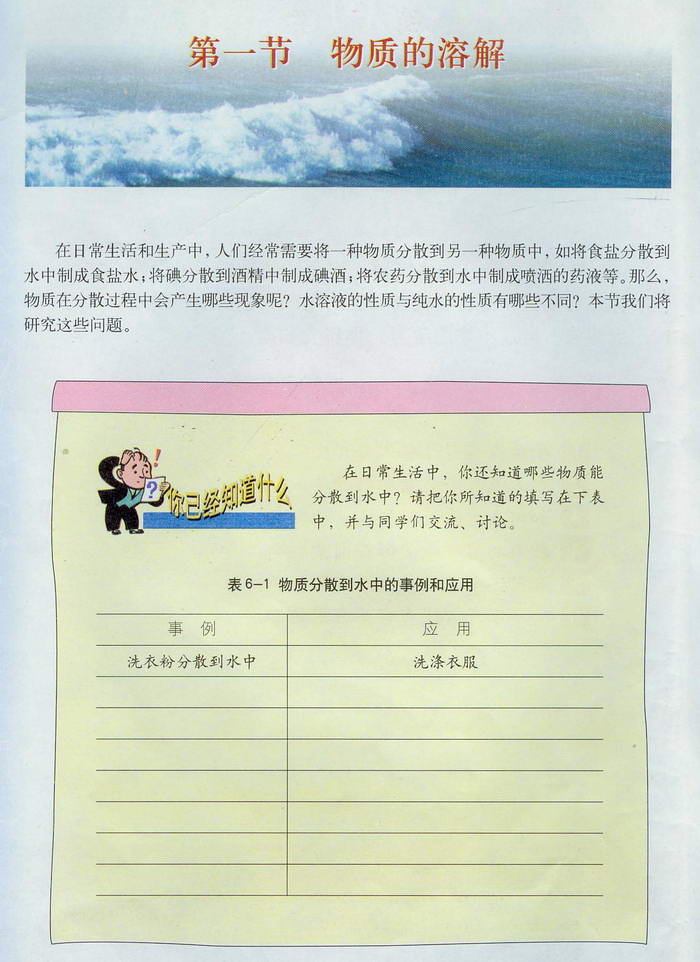 第一节 物质的溶解
在日常生活和生产中，人们经常需要将一种物质分散到另一种物质中，如将食盐分散到
水中制成食盐水；将碘分散到酒精中制成碘酒；将农药分散到水中制成喷洒的药液等。那么，
物质在分散过程中会产生哪些现象呢？水溶液的性质与纯水的性质有哪些不同？本节我们将
研究这些问题。
!
?
你已经知道什么
在日常生活中，你还知道哪些物质能
分散到水中？请把你所知道的填写在下表
中，并与同学们交流、讨论。
表6-1 物质分散到水中的事例和应用
事 例 应 用
洗衣粉分散到水中 洗涤衣服